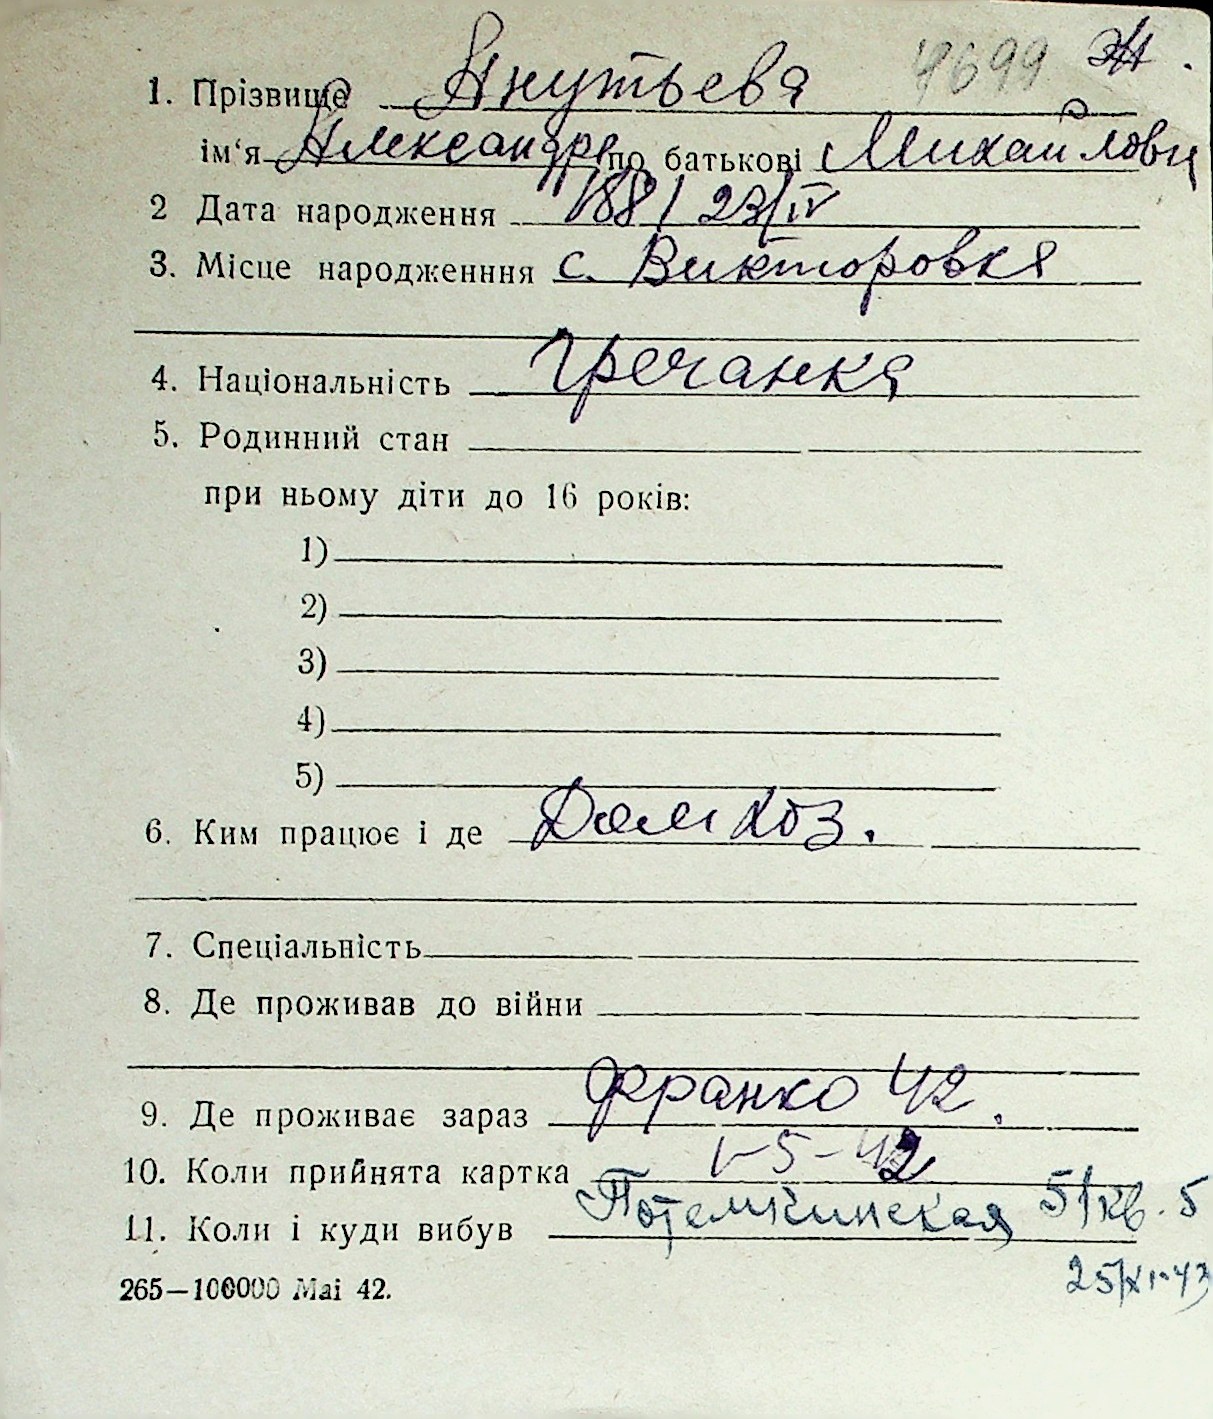 4699 Ж.
1. Прізвище Анутьева
ім'я Александра по батькові Михайловн
2 Дата народження 1881 23/IV
3. Місце народженння с. Викторовка
4. Національність гречанка
5. Родинний стан
при ньому діти до 16 років:
1)
2)
3)
4)
5)
6. Ким працює і де Дом хоз.
7. Спеціальність
8. Де проживав до війни
9. Де проживає зараз Франко 42.
10. Коли прийнята картка 1-5-42
11. Коли і куди вибув Потемкинская 51 кв. 5
25/XI-43
265—100000 Mai 42.